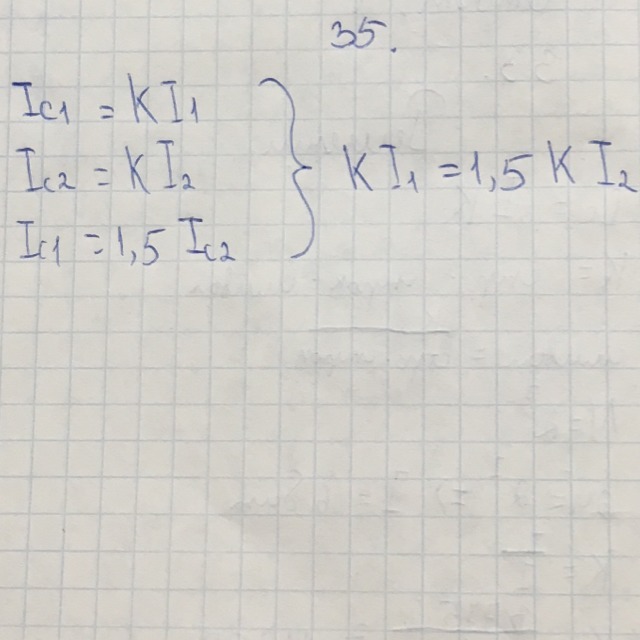 35.
Ic1 = KI1
Ic2 = KI2
Ic1 = 1,5 Ic2
} KI1 = 1,5 KI2